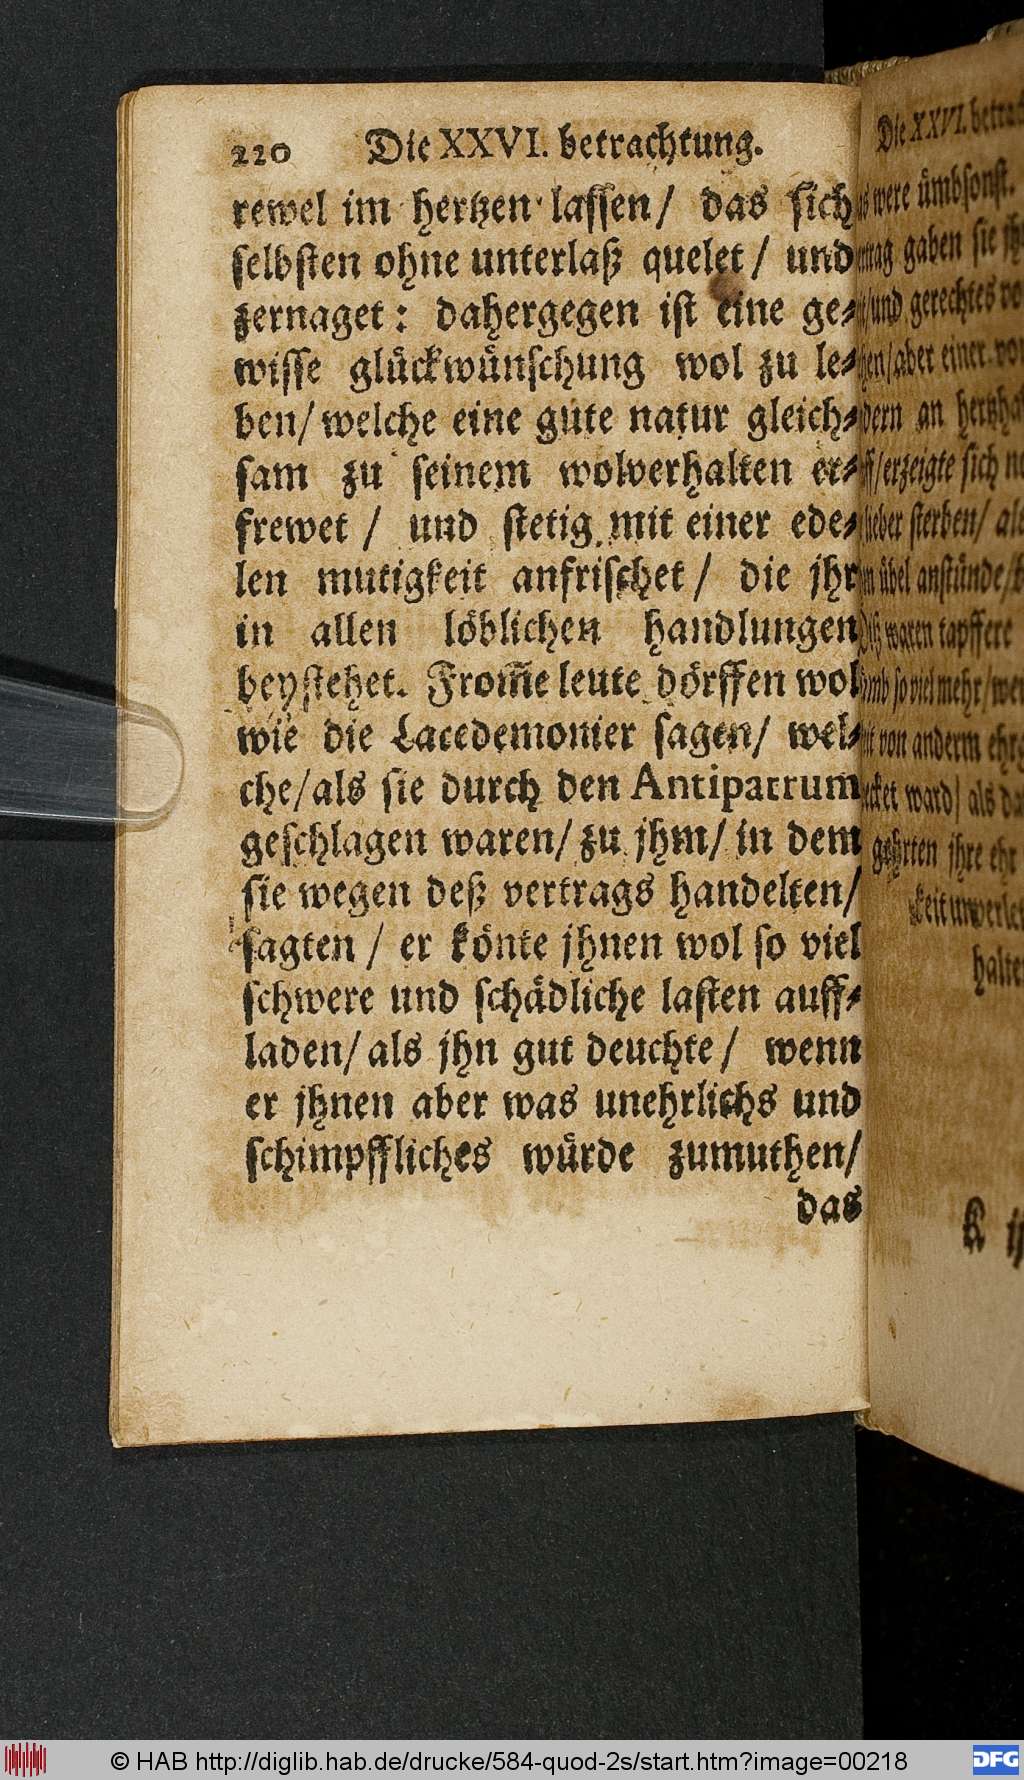 220 Die XXVI. betrachtung.
rewel im hertzen lassen/ das sich
selbsten ohne unterlaß quelet/ und
zernaget: dahergegen ist eine ge-
wisse glückwünschung wol zu le-
ben/ welche eine gute natur gleich-
sam zu seinem wolverhalten er-
frewet/ und stetig mit einer ede-
len mutigkeit anfrischet/ die jhr
in allen löblichen handlungen
beystehet. From̃e leute dörffen wol
wie die Lacedemonier sagen/ wel-
che/ als sie durch den Antipatrum
geschlagen waren/ zu jhm/ in dem
sie wegen deß vertrags handelten/
sagten/ er könte jhnen wol so viel
schwere und schädliche lasten auff-
laden/ als jhn gut deuchte/ wenn
er jhnen aber was unehrlichs und
schimpffliches würde zumuthen/
das
Die XXVI.
were ümbsonst.
gaben sie
und gerechtes
aber einer
dern an
erzeigte sich
lieber sterben/
übel anstünde/
waren tapffere
so viel mehr/
von anderm
ward/ als
jhre ehr
halten
K
© HAB http://diglib.hab.de/drucke/584-quod-2s/start.htm?image=00218
DFG